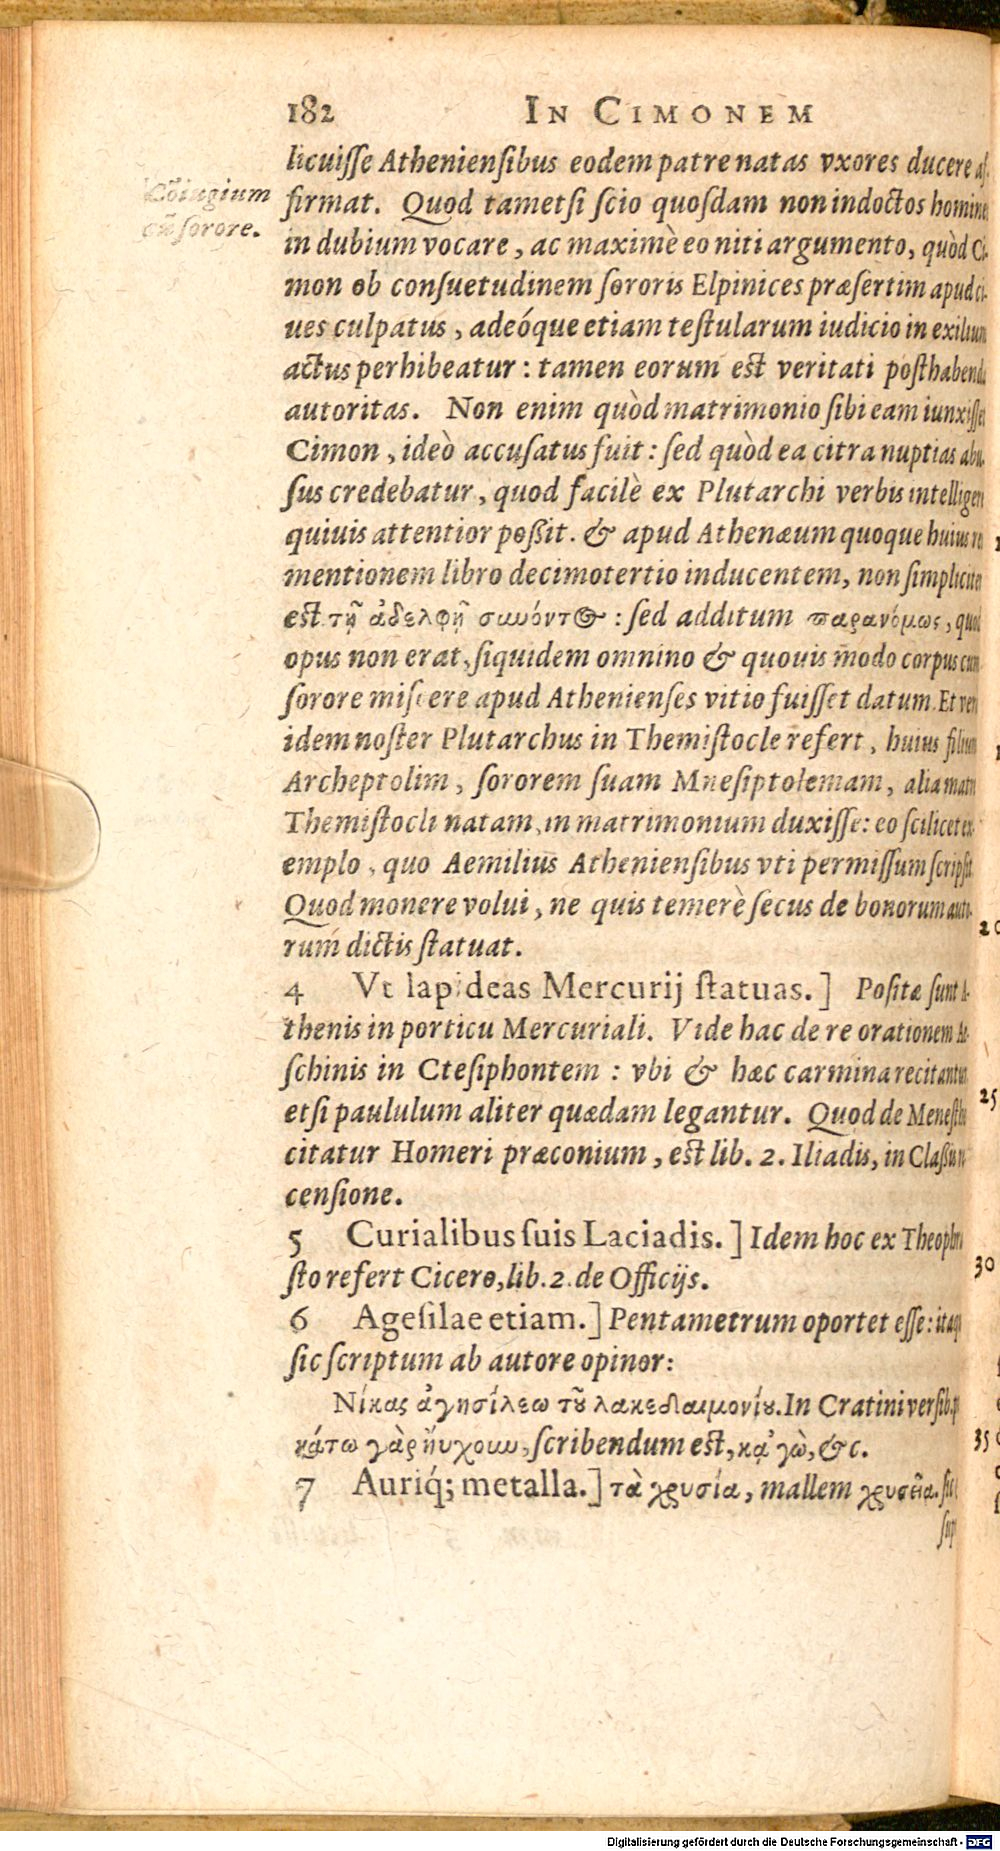 182 IN CIMONEM
Cōiugium
cū sorore.
licuisse Atheniensibus eodem patre natas vxores ducere af-
firmat. Quod tametsi scio quosdam non indoctos homines
in dubium vocare, ac maximè eo niti argumento, quòd Ci-
mon ob consuetudinem sororis Elpinices præsertim apud ci-
ues culpatus, adeóque etiam testularum iudicio in exilium
actus perhibeatur: tamen eorum est veritati posthabenda
autoritas. Non enim quòd matrimonio sibi eam iunxisset
Cimon, ideò accusatus fuit: sed quòd ea citra nuptias abu-
sus credebatur, quod facilè ex Plutarchi verbis intelligere
quiuis attentior possit. & apud Athenæum quoque huius rei
mentionem libro decimotertio inducentem, non simpliciter
est τῇ ἀδελφῇ συνόντος: sed additum παρανόμως, quod
opus non erat, siquidem omnino & quouis modo corpus cum
sorore miscere apud Athenienses vitio fuisset datum. Et vero
idem noster Plutarchus in Themistocle refert, huius filium
Archeptolim, sororem suam Mnesiptolemam, alia matre
Themistocli natam, in matrimonium duxisse: eo scilicet ex-
emplo, quo Aemilius Atheniensibus vti permissum scripsit.
Quod monere volui, ne quis temerè secus de bonorum auto-
rum dictis statuat.
4 Vt lapideas Mercurij statuas.] Positæ sunt A-
thenis in porticu Mercuriali. Vide hac de re orationem Ae-
schinis in Ctesiphontem: vbi & hæc carmina recitantur
etsi paululum aliter quædam legantur. Quod de Menestheo
citatur Homeri præconium, est lib. 2. Iliadis, in Classis re-
censione.
5 Curialibus suis Laciadis.] Idem hoc ex Theophra-
sto refert Cicero, lib. 2. de Officijs.
6 Agesilae etiam.] Pentametrum oportet esse: itaq;
sic scriptum ab autore opinor:
Νίκας ἀγησίλεω τοῦ λακεδαιμονίου. In Cratini versib.
κάτω γὰρ ηὔχουν, scribendum est, κᾀγὼ, &c.
7 Auriq́; metalla.] τὰ χρυσία, mallem χρυσεῖα.
20
25
30
35